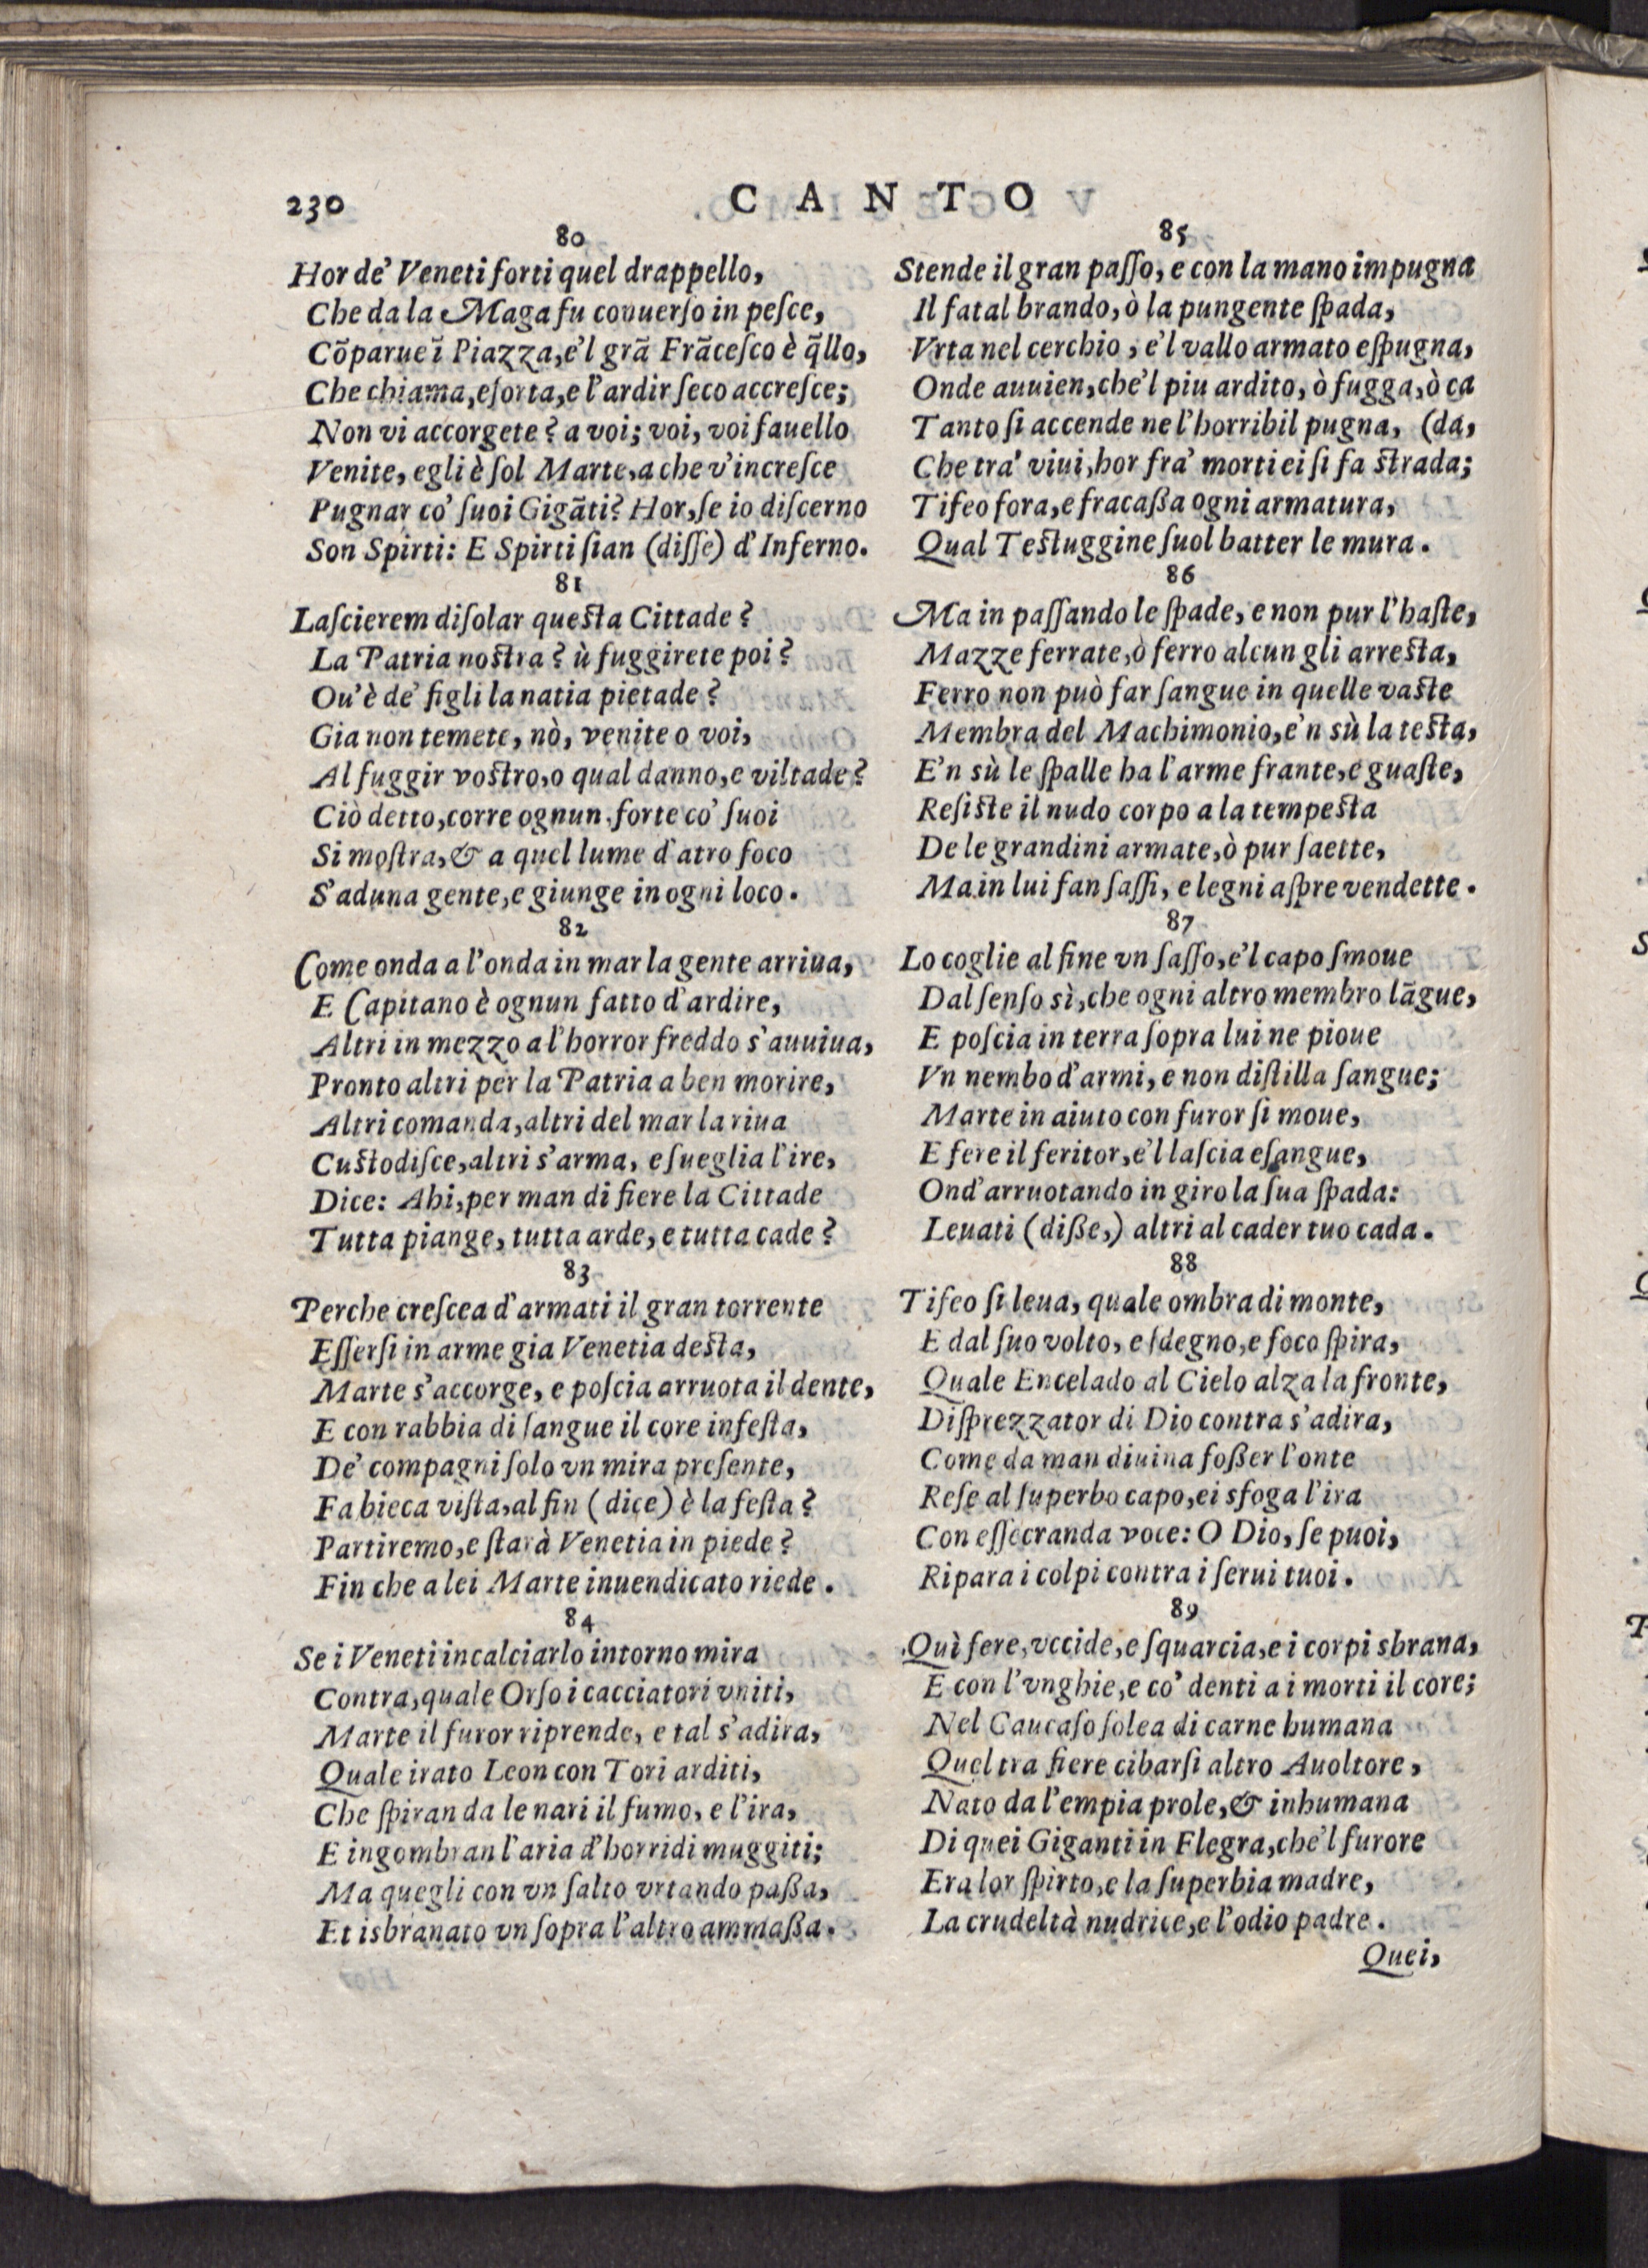 230
CANTO
80
Hor de' Veneti forti quel drappello,
Che da la Maga fu conuerſo in peſce,
Cõparue ĩ Piazza, e'l grã Frãceſco è q̃llo,
Che chiama, eſorta, e l'ardir ſeco accreſce;
Non vi accorgete? a voi; voi, voi fauello
Venite, egli è ſol Marte, a che v'increſce
Pugnar co' ſuoi Gigãti? Hor, ſe io diſcerno
Son Spirti: E Spirti ſian (diſſe) d'Inferno.
81
Laſcierem diſolar queſta Cittade?
La Patria noſtra? ù fuggirete poi?
Ou'è de' figli la natia pietade?
Gia non temete, nò, venite o voi,
Al fuggir voſtro, o qual danno, e viltade?
Ciò detto, corre ognun. forte co' ſuoi
Si moſtra, & a quel lume d'atro foco
S'aduna gente, e giunge in ogni loco.
82
Come onda a l'onda in mar la gente arriua,
E Capitano è ognun fatto d'ardire,
Altri in mezzo a l'horror freddo s'auuiua,
Pronto altri per la Patria a ben morire,
Altri comanda, altri del mar la riua
Cuſtodiſce, altri s'arma, e ſueglia l'ire,
Dice: Ahi, per man di fiere la Cittade
Tutta piange, tutta arde, e tutta cade?
83
Perche creſcea d'armati il gran torrente
Eſſerſi in arme gia Venetia deſta,
Marte s'accorge, e poſcia arruota il dente,
E con rabbia di ſangue il core infeſta,
De' compagni ſolo vn mira preſente,
Fa bieca viſta, al fin (dice) è la feſta?
Partiremo, e ſtarà Venetia in piede?
Fin che a lei Marte inuendicato riede.
84
Se i Veneti incalciarlo intorno mira
Contra, quale Orſo i cacciatori vniti,
Marte il furor riprende, e tal s'adira,
Quale irato Leon con Tori arditi,
Che ſpiran da le nari il fumo, e l'ira,
E ingombran l'aria d'horridi muggiti;
Ma quegli con vn ſalto vrtando paßa,
Et isbranato vn ſopra l'altro ammaßa.
85
Stende il gran paſſo, e con la mano impugna
Il fatal brando, ò la pungente ſpada,
Vrta nel cerchio, e'l vallo armato eſpugna,
Onde auuien, che'l piu ardito, ò fugga, ò ca
Tanto ſi accende ne l'horribil pugna, (da,
Che tra' viui, hor fra' morti ei ſi fa ſtrada;
Tifeo fora, e fracaßa ogni armatura,
Qual Teſtuggine ſuol batter le mura.
86
Ma in paſſando le ſpade, e non pur l'haſte,
Mazze ferrate, ò ferro alcun gli arreſta,
Ferro non può far ſangue in quelle vaſte
Membra del Machimonio, e'n sù la teſta,
E'n sù le ſpalle ha l'arme frante, e guaſte,
Reſiſte il nudo corpo a la tempeſta
De le grandini armate, ò pur ſaette,
Ma in lui fan ſaſſi, e legni aſpre vendette.
87
Lo coglie al fine vn ſaſſo, e'l capo ſmoue
Dal ſenſo sì, che ogni altro membro lãgue,
E poſcia in terra ſopra lui ne pioue
Vn nembo d'armi, e non diſtilla ſangue;
Marte in aiuto con furor ſi moue,
E fere il feritor, e'l laſcia eſangue,
Ond'arruotando in giro la ſua ſpada:
Leuati (diße,) altri al cader tuo cada.
88
Tifeo ſi leua, quale ombra di monte,
E dal ſuo volto, e ſdegno, e foco ſpira,
Quale Encelado al Cielo alza la fronte,
Diſprezzator di Dio contra s'adira,
Come da man diuina foßer l'onte
Reſe al ſuperbo capo, ei sfoga l'ira
Con eſſecranda voce: O Dio, ſe puoi,
Ripara i colpi contra i ſerui tuoi.
89
Quì fere, vccide, e ſquarcia, e i corpi sbrana,
E con l'vnghie, e co' denti a i morti il core;
Nel Caucaſo ſolea di carne humana
Quel tra fiere cibarſi altro Auoltore,
Nato da l'empia prole, & inhumana
Di quei Giganti in Flegra, che'l furore
Era lor ſpirto, e la ſuperbia madre,
La crudeltà nudrice, e l'odio padre.
Quei,